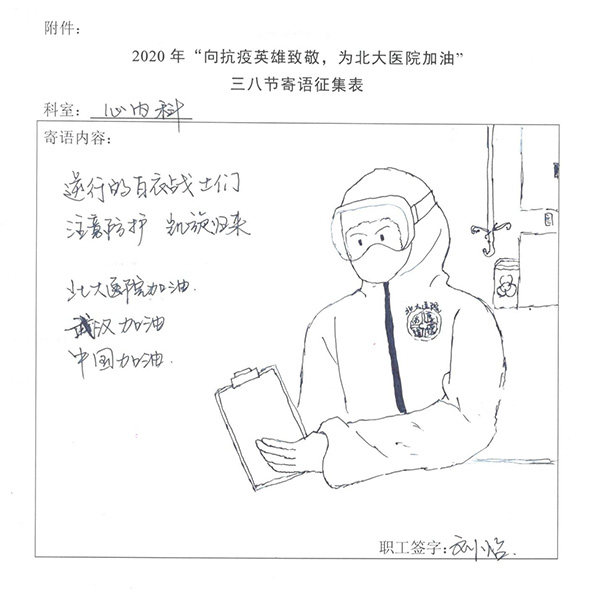 附件：
2020 年“向抗疫英雄致敬，为北大医院加油”
三八节寄语征集表
科室：心内科
寄语内容：
逆行的白衣战士们
注意防护 凯旋归来
北大医院加油.
武汉加油
中国加油.
北大医院
职工签字：刘怡.